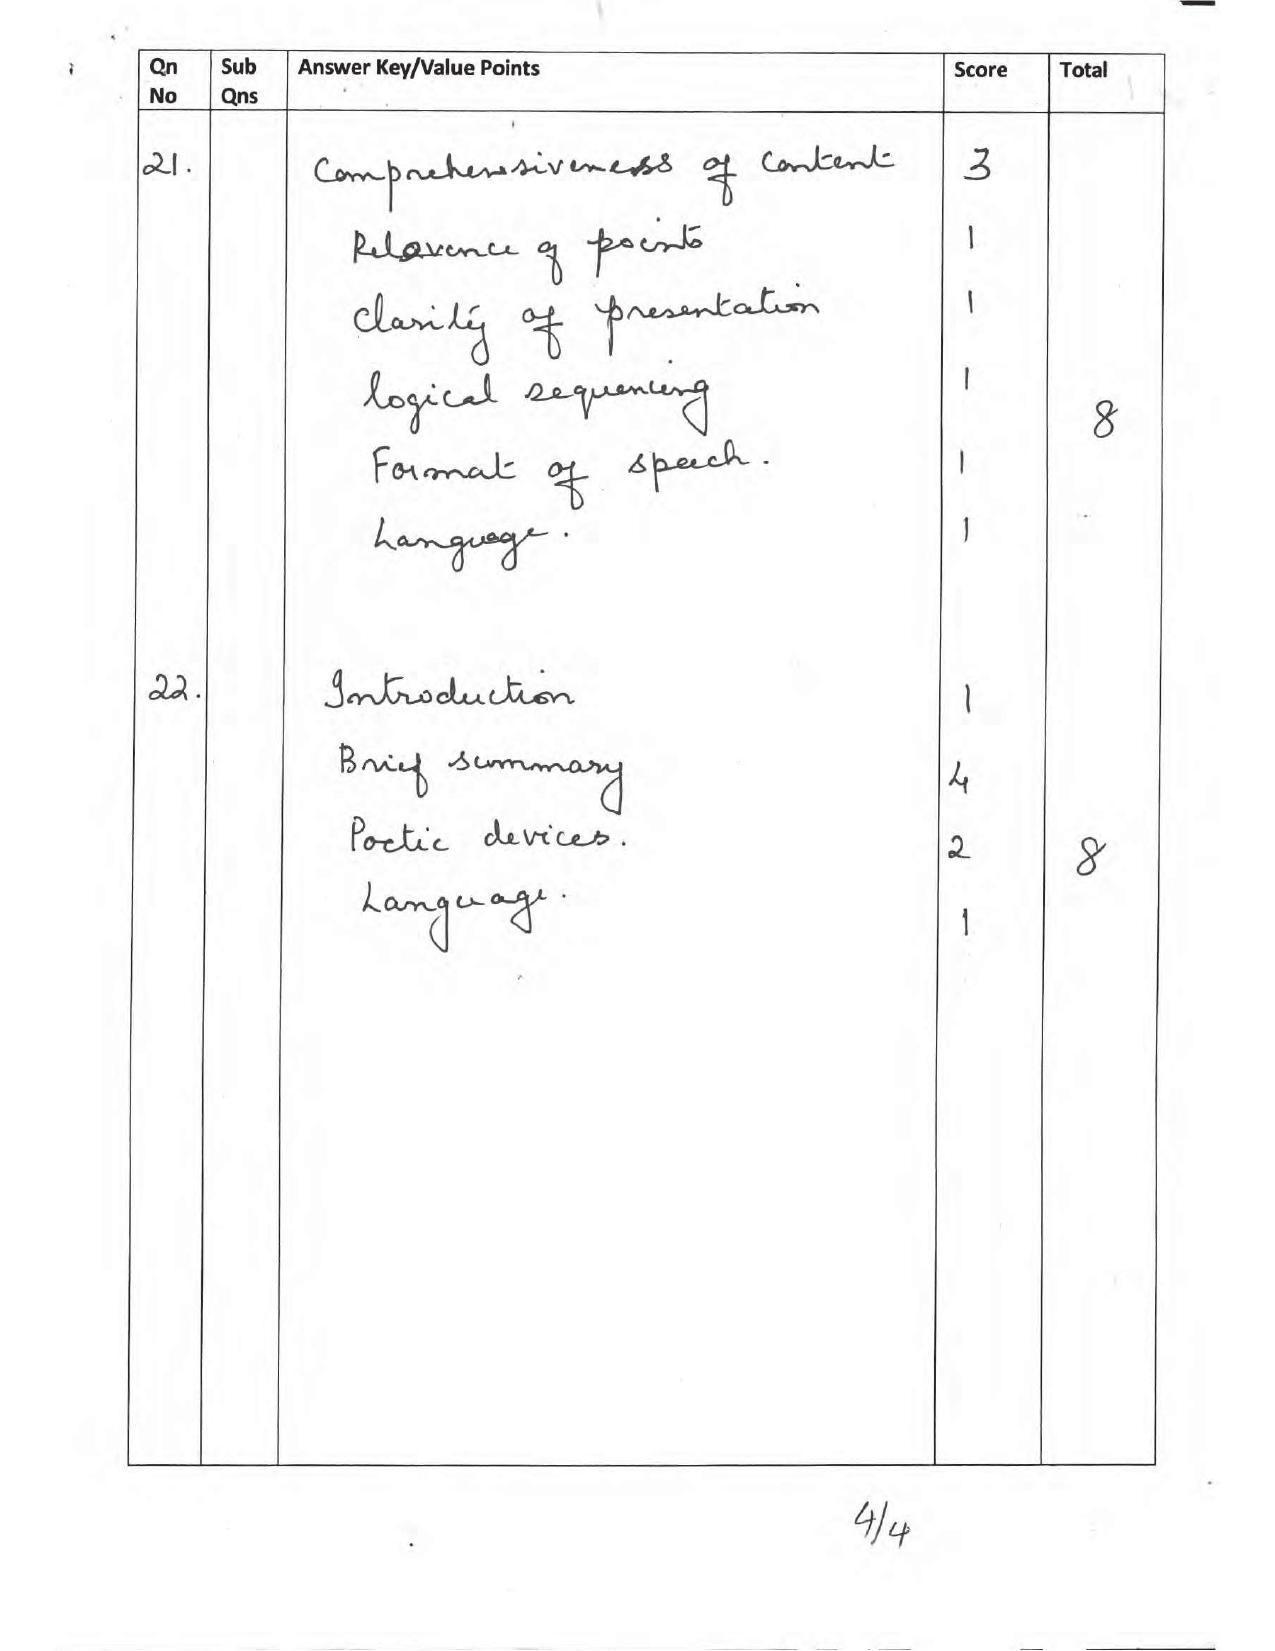 Qn No Sub Qns Answer Key/Value Points Score Total
21. Comprehensiveness of Content 3
Relavence of points 1
Clarity of presentation 1
logical sequencing 1
8
Format of speech. 1
Language. 1
22. Introduction 1
Brief summary 4
Poetic devices. 2 8
Language. 1
4/4